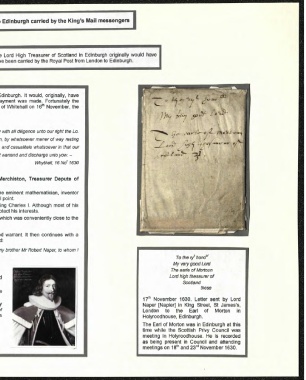 - Edinburgh carried by the King's Mail messengers
e Lord High Treasurer of Scotland in Edinburgh originally would have
ve been carried by the Royal Post from London to Edinburgh.
Edinburgh. It would, originally, have
ayment was made. Fortunately the
of Whitehall on 16th November, the
with all diligence unto our right the Lo.
n, by whatsoever maner of way resting
and casualteis whatsoever in that our
warrand and discharge unto yow. –
Whythall, 16 Nov 1630
Merchiston, Treasurer Depute of
e eminent mathematician, inventor
l point.
ng Charles I. Although most of his
cted his interests.
which was conveniently close to the
d warrant. It then continues with a
my brother Mr Robert Naper, to whom I
My very good Lord
To the ry^t hono^ll
My very good Lord
The earle of Mortoun
Lord high treasurer of
Scotland
17th November 1630. Letter sent by Lord
Naper (Napier) in King Street, St James's,
London to the Earl of Morton in
Holyroodhouse, Edinburgh.
The Earl of Morton was in Edinburgh at this
time while the Scottish Privy Council was
meeting in Holyroodhouse. He is recorded
as being present in Council and attending
meetings on 18th and 23rd November 1630.